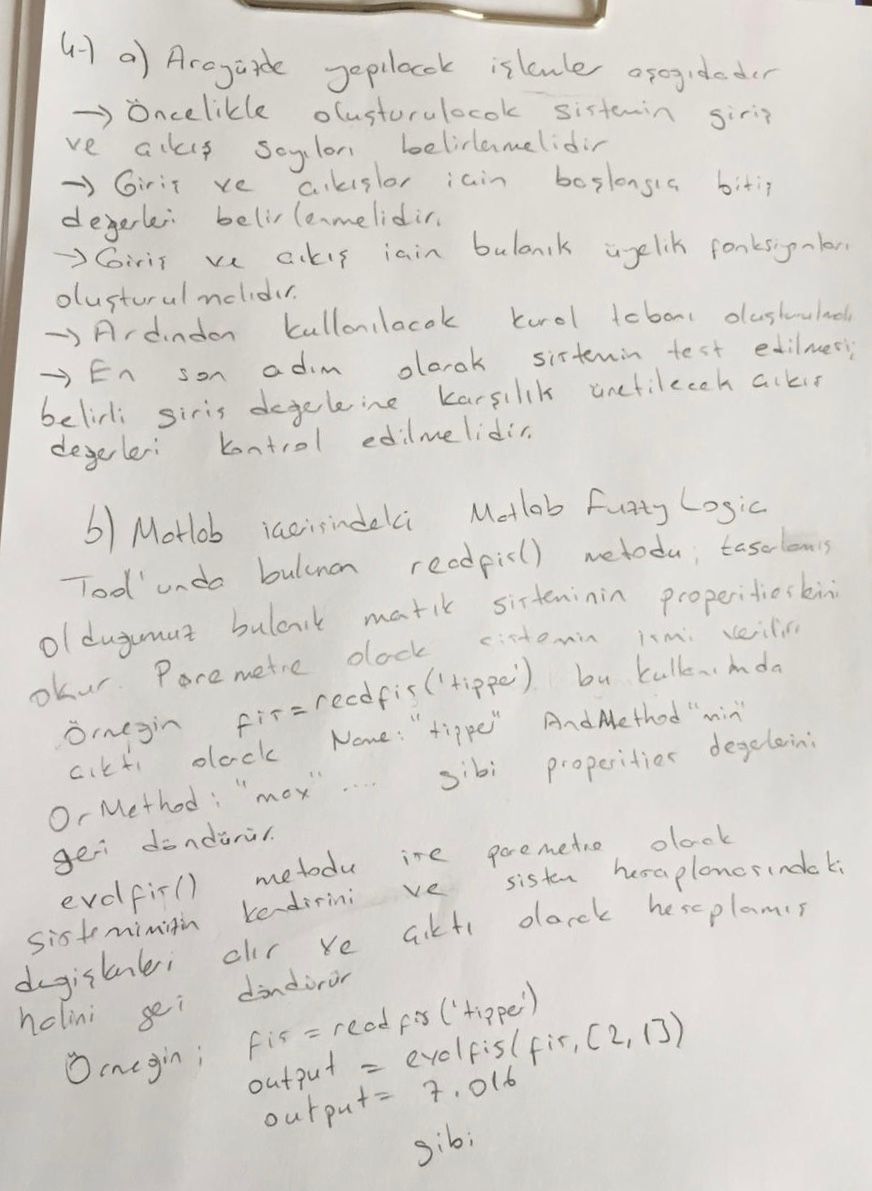 4-) a) Arayüzde yapılacak işlemler aşağıdadır
→ Öncelikle oluşturulacak sistemin giriş
ve çıkış sayıları belirlenmelidir
→ Giriş ve çıkışlar için başlangıç bitiş
değerleri belirlenmelidir.
→ Giriş ve çıkış için bulanık üyelik fonksiyonları
oluşturulmalıdır.
→ Ardından kullanılacak kural tabanı oluşturulmalı
→ En son adım olarak sistemin test edilmesi,
belirli giriş değerlerine karşılık üretilecek çıkış
değerleri kontrol edilmelidir.
b) Matlab içerisindeki Matlab Fuzzy Logic
Tool'unda bulunan readfis() metodu, tasarlamış
olduğumuz bulanık matık sisteminin properities
okur. Parametre olack sistemin ismi verilir.
Örneğin fis=readfis('tipper') bu kullanımda
çıktı olarak Name: "tipper" AndMethod "min"
OrMethod: "max" .... gibi properities değerlerini
geri döndürür.
evalfis() metodu ise parametre olarak
sistemimizin kendisini ve sistem hesaplamasındaki
değişkenleri alır ve çıktı olarak hesaplamış
halini geri döndürür
Örneğin; fis = readfis('tipper')
output = evalfis(fis, [2, 1])
output= 7.016
gibi